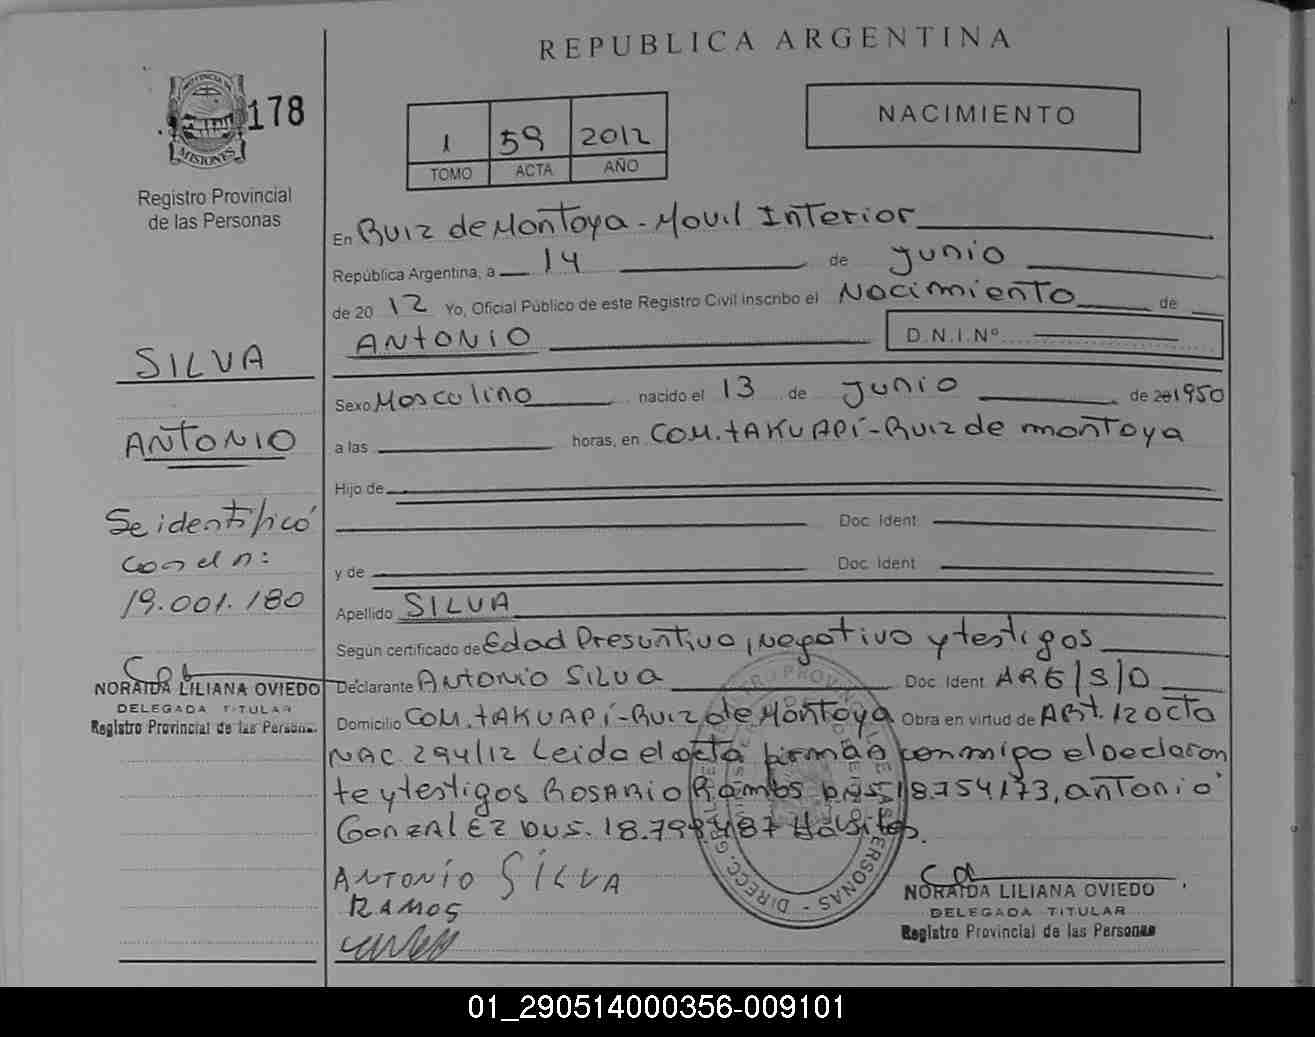 REPUBLICA ARGENTINA
PROVINCIA DE
MISIONES
178
Registro Provincial
de las Personas
1 59 2012
TOMO ACTA AÑO
NACIMIENTO
En Ruiz de Montoya - Movil Interior
República Argentina, a 14 de junio
de 20 12 Yo, Oficial Público de este Registro Civil inscribo el Nacimiento de
ANTONIO D.N.I.Nº
SILVA
ANTONIO
Se identificó
con el n:
19.001.180
NORAIDA LILIANA OVIEDO
DELEGADA TITULAR
Registro Provincial de las Personas
Sexo Masculino nacido el 13 de junio de 20 1950
a las horas, en COM. TAKUAPÍ - Ruiz de montoya
Hijo de
Doc. Ident.
y de Doc. Ident.
Apellido SILVA
Según certificado de Edad Presuntiva, Negativo y testigos
Declarante ANTONIO SILVA Doc. Ident. ARG/S/D
Domicilio COM. TAKUAPÍ - Ruiz de Montoya Obra en virtud de ARt. 12 acta
NAC. 294/12 Leida el acta firman conmigo el Declaran
te y testigos ROSARIO Ramos 18.754173, antonio
GonzALEZ DUS. Habites.
ANTONÍO SÍLVA
RAMOS
NORAIDA LILIANA OVIEDO
DELEGADA TITULAR
Registro Provincial de las Personas
01_290514000356-009101